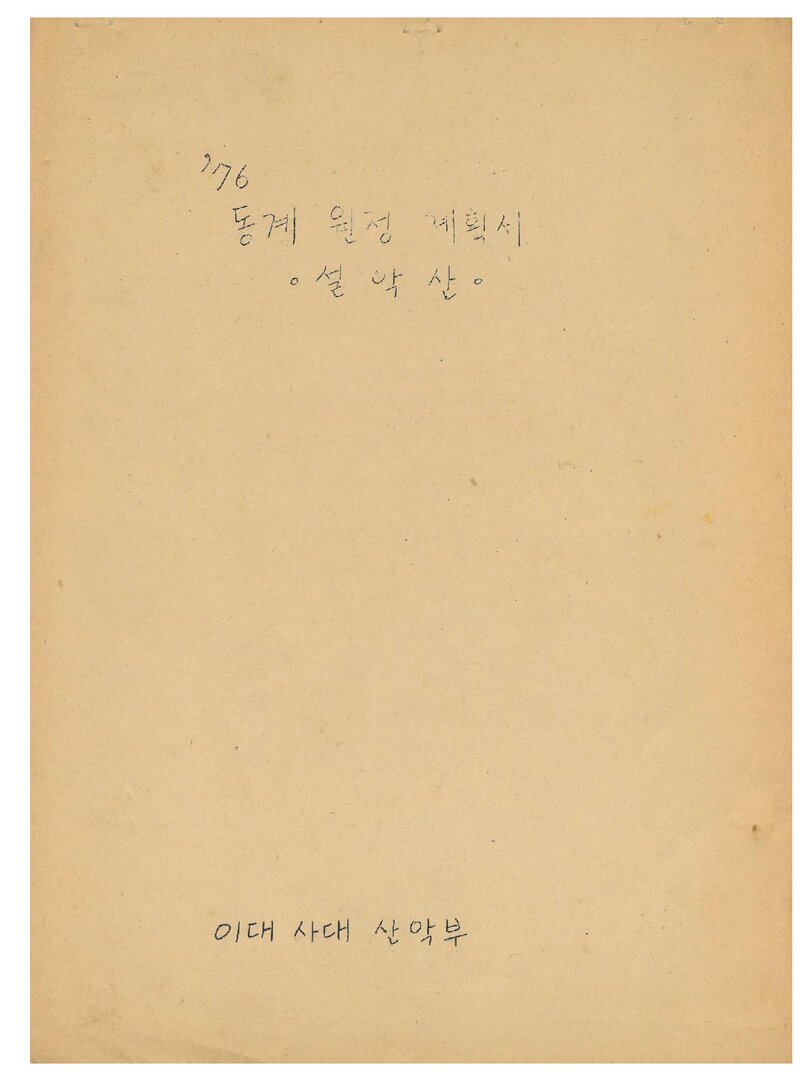 '76
동계 원정 계획서
◦설 악 산◦
이대 사대 산악부